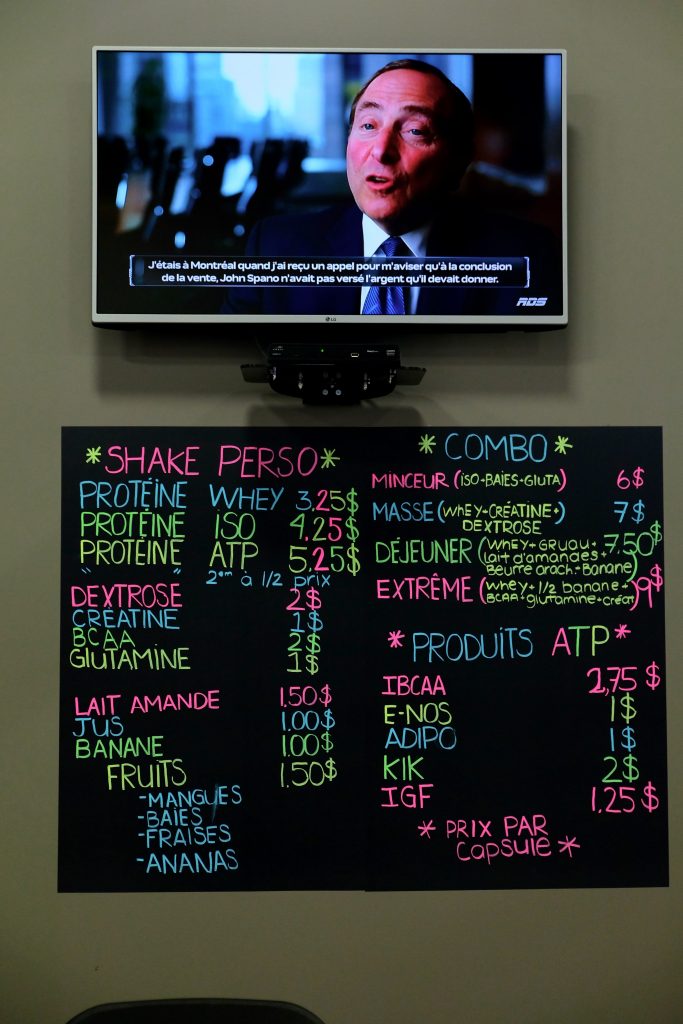 J'étais à Montréal quand j'ai reçu un appel pour m'aviser qu'à la conclusion
de la vente, John Spano n'avait pas versé l'argent qu'il devait donner.
RDS
LG
*SHAKE PERSO*
PROTÉINE WHEY 3,25$
PROTÉINE ISO 4,25$
PROTÉINE ATP 5,25$
" " 2em à 1/2 prix
DEXTROSE 2$
CRÉATINE 1$
BCAA 2$
GLUTAMINE 1$
LAIT AMANDE 1.50$
JUS 1.00$
BANANE 1.00$
FRUITS 1.50$
-MANGUES
-BAIES
-FRAISES
-ANANAS
*COMBO*
MINCEUR (ISO+BAIES+GLUTA) 6$
MASSE (WHEY+CRÉATINE+ 7$
DEXTROSE
DÉJEUNER (WHEY+GRUAU+ 7.50$
lait d'amandes+
Beurre arach+Banane)
EXTRÊME (whey+1/2 banane+ 9$
BCAA+glutamine+créat)
*PRODUITS ATP*
IBCAA 2,75$
E-NOS 1$
ADIPO 1$
KIK 2$
IGF 1,25$
* PRIX PAR
capsule *